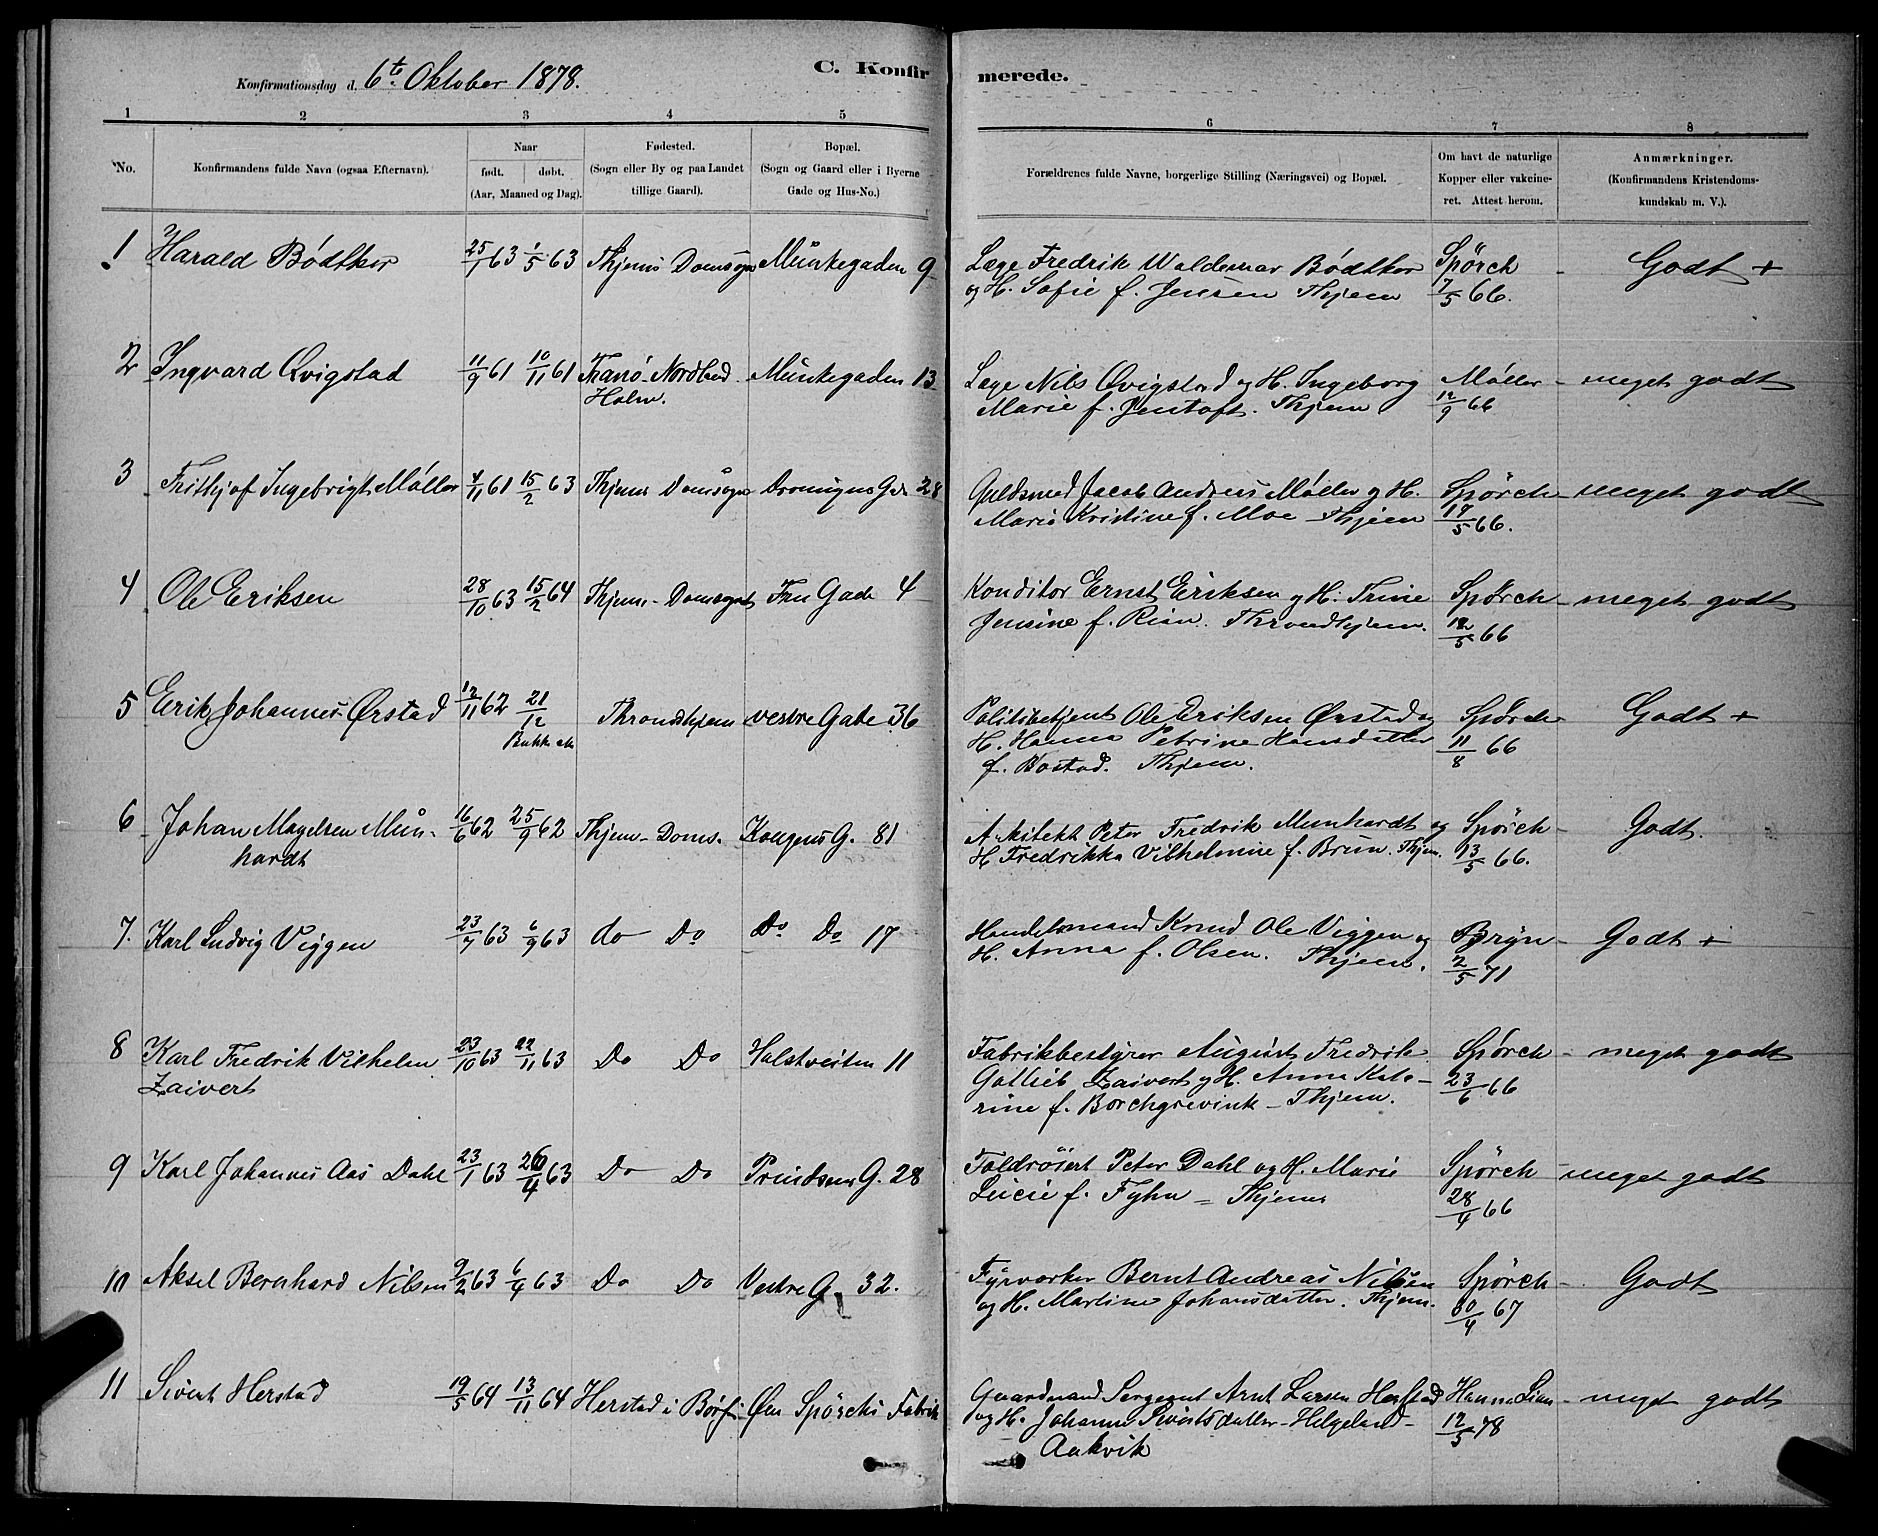 Konfirmationsdag d. 6te Oktober 1878.
C. Konfirmerede.
1 2 3 4 5 6 7 8
No.
Konfirmandens fulde Navn (ogsaa Efternavn).
Naar
født. døbt.
(Aar, Maaned og Dag).
Fødested.
(Sogn eller By og paa Landet
tillige Gaard).
Bopæl.
(Sogn og Gaard eller i Byerne
Gade og Hus-No.)
Forældrenes fulde Navne, borgerlige Stilling (Næringsvei) og Bopæl.
Om havt de naturlige
Kopper eller vakcine-
ret. Attest herom.
Anmærkninger.
(Konfirmandens Kristendoms-
kundskab m. V.).
1 Harald Bødtker 25/1 63 1/5 63 Thjems Domsogn Munkegaden 9 Læge Fredrik Waldemar Bødtker Spörch - Godt +
og H. Sofie f. Jensen Thjem 7/5 66.
2 Ingvard Qvigstad 11/9 61 10/11 61 Tranø Nordland Munkegaden 13 Læge Nils Qvigstad og H. Ingeborg Møller - meget godt
Holm. Marie f. Jentoft. Thjem 12/9 66
3 Frithjof Ingebrigt Møller 4/11 61 15/2 63 Thjems Domsogn Dronnigns Ga 28 Guldsmed Jacob Andreas Møller og H. Spörch - meget godt
Marie Kristine f. Moe Thjem 17/5 66.
4 Ole Eriksen 28/10 63 15/2 64 Thjems - Domsognet Fru Gade 4 Konditor Ernst Eriksen og H. Trine Spörch - meget godt
Jensine f. Rian. Throndhjem. 12/5 66
5 Erik Johannes Ørstad 12/11 62 21/12 Throndhjem vestre Gade 36 Politibetjent Ole Eriksen Ørstad og Spörch - Godt +
Bakke H. Hanna Petrine Hansdatter 11/8 66
f. Bostad. Thjem.
6 Johan Magelsen Mun- 16/6 62 25/9 62 Thjem - Doms. Kongens G. 81 Arkitekt Peter Fredrik Munhardt og Spörch - Godt.
hardt H. Fredrikka Vilhelmine f. Brun. Thjem. 13/5 66.
7. Karl Ludvig Viggen 23/7 63 6/9 63 do Do Do Do 17 Handelsmand Knud Ole Viggen og Bryn - Godt +
H. Anna f. Olsen. Thjem. 2/5 71
8 Karl Fredrik Vilhelm 23/10 63 22/11 63 Do Do Holstveiten 11 Fabrikbestyrer August Fredrik Spörch - meget godt
Zaivert Gottlieb Zaivert og H. Anna Kata- 23/6 66
rine f. Borchgrevink - Thjem.
9 Karl Johannes Aas Dahl 23/1 63 26/4 63 Do Do Prindsens G. 28 Toldrøiert Peter Dahl og H. Marie Spörch - meget godt
Lucie f. Fyhn - Thjems 28/4 66
10 Aksel Bernhard Nilsen 9/2 63 6/4 63 Do Do Vestre G. 32. Fyrværker Bernt Andreas Nilsen Spörch - Godt
og H. Martine Johansdatter. Thjem. 30/4 67
11 Sivert Herstad 19/5 64 13/11 64 Herstad i Børsen Spörchs Fabrik Gaardmand Sergeant Arnt Larsen Herstad Hanna Lian - meget godt
og H. Johanna Sivertsdatter - Helgeland - 12/5 78
Aakvik